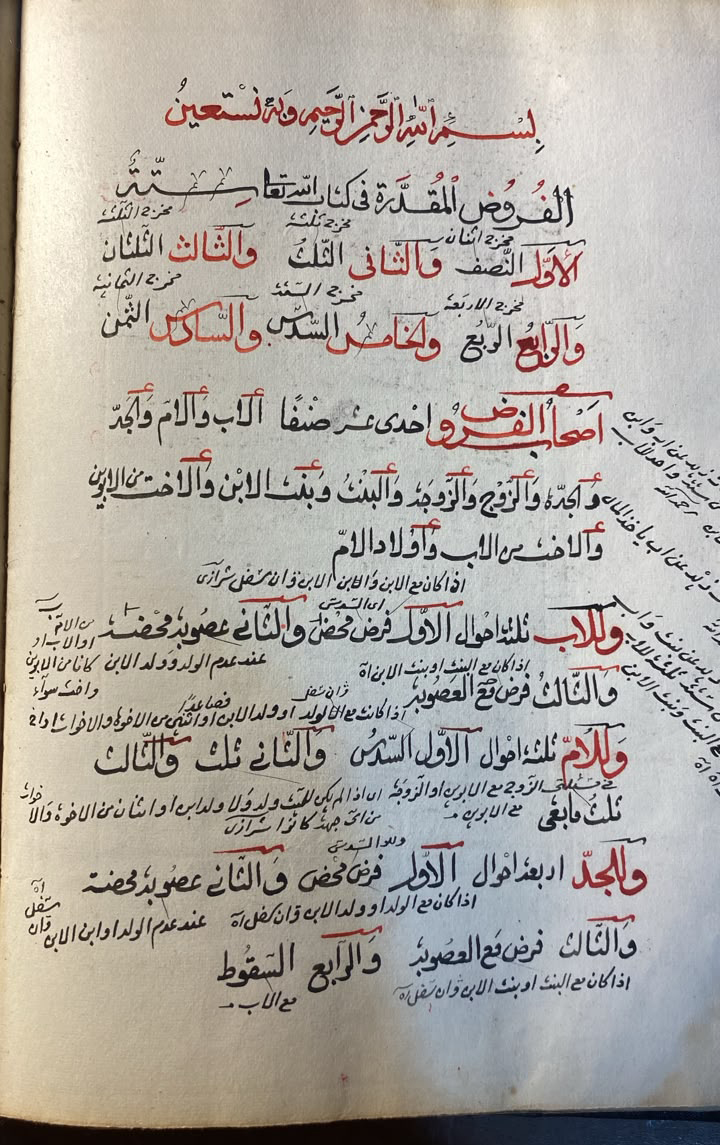 بسم الله الرحمن الرحيم وبه نستعين
الفروض المقدرة فى كتاب الله تعا ستة
مخرج اثنان مخرج ثلثة مخرج الثلث
الاول النصف والثانى الثلث والثالث الثلثان
مخرج الاربعة مخرج الستة مخرج الثمانية
والرابع الربع والخامس السدس والسادس الثمن
اصحاب الفروض احدى عشر صنفا الاب والام والجد
والجدة والزوج والزوجة والبنت وبنت الابن والاخت من الابوين
والاخت من الاب واولاد الام
اذا كان مع الابن وابن الابن وان سفل شرازى
اى السدس
وللاب ثلثة احوال الاول فرض محض والثانى عصوبة محضة
اذا كان مع البنت او بنت الابن اه عند عدم الولد وولد الابن
والثالث فرض مع العصوبة
وان سفل فصاعدا
اذا كانت مع الولد او ولد الابن او اثنين من الاخوة والاخوات
من الاب او الاب كانا من الابوين واخت سواء
وللام ثلثة احوال الاول السدس والثانى ثلث والثالث
اى اذا لم يكن للميت ولد ولا ولد ابن او اثنان من الاخوة والاخوات
من اى جهة كانوا شرازى
الزوج مع الابوين او الزوجة مع الابوين
ثلث مابقى
وهو السدس
وللجد اربعة احوال الاول فرض محض والثانى عصوبة محضة
اذا كان مع الولد او ولد الابن وان سفل اه عند عدم الولد او ابن الابن وان سفل اه
والثالث فرض مع العصوبة والرابع السقوط
اذا كان مع البنت او بنت الابن وان سفل اه مع الاب